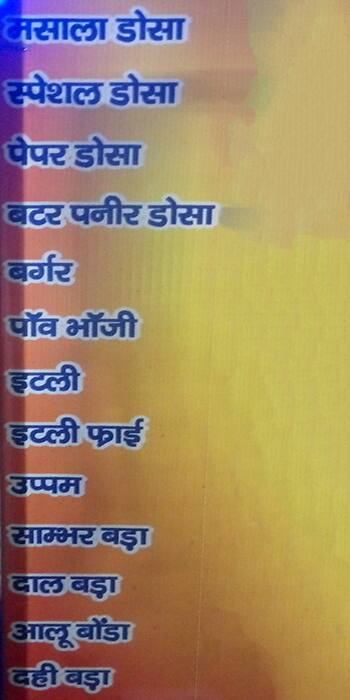 मसाला डोसा
स्पेशल डोसा
पेपर डोसा
बटर पनीर डोसा
बर्गर
पॉव भॉजी
इटली
इटली फ्राई
उप्पम
साम्भर बड़ा
दाल बड़ा
आलू बोंडा
दही बड़ा